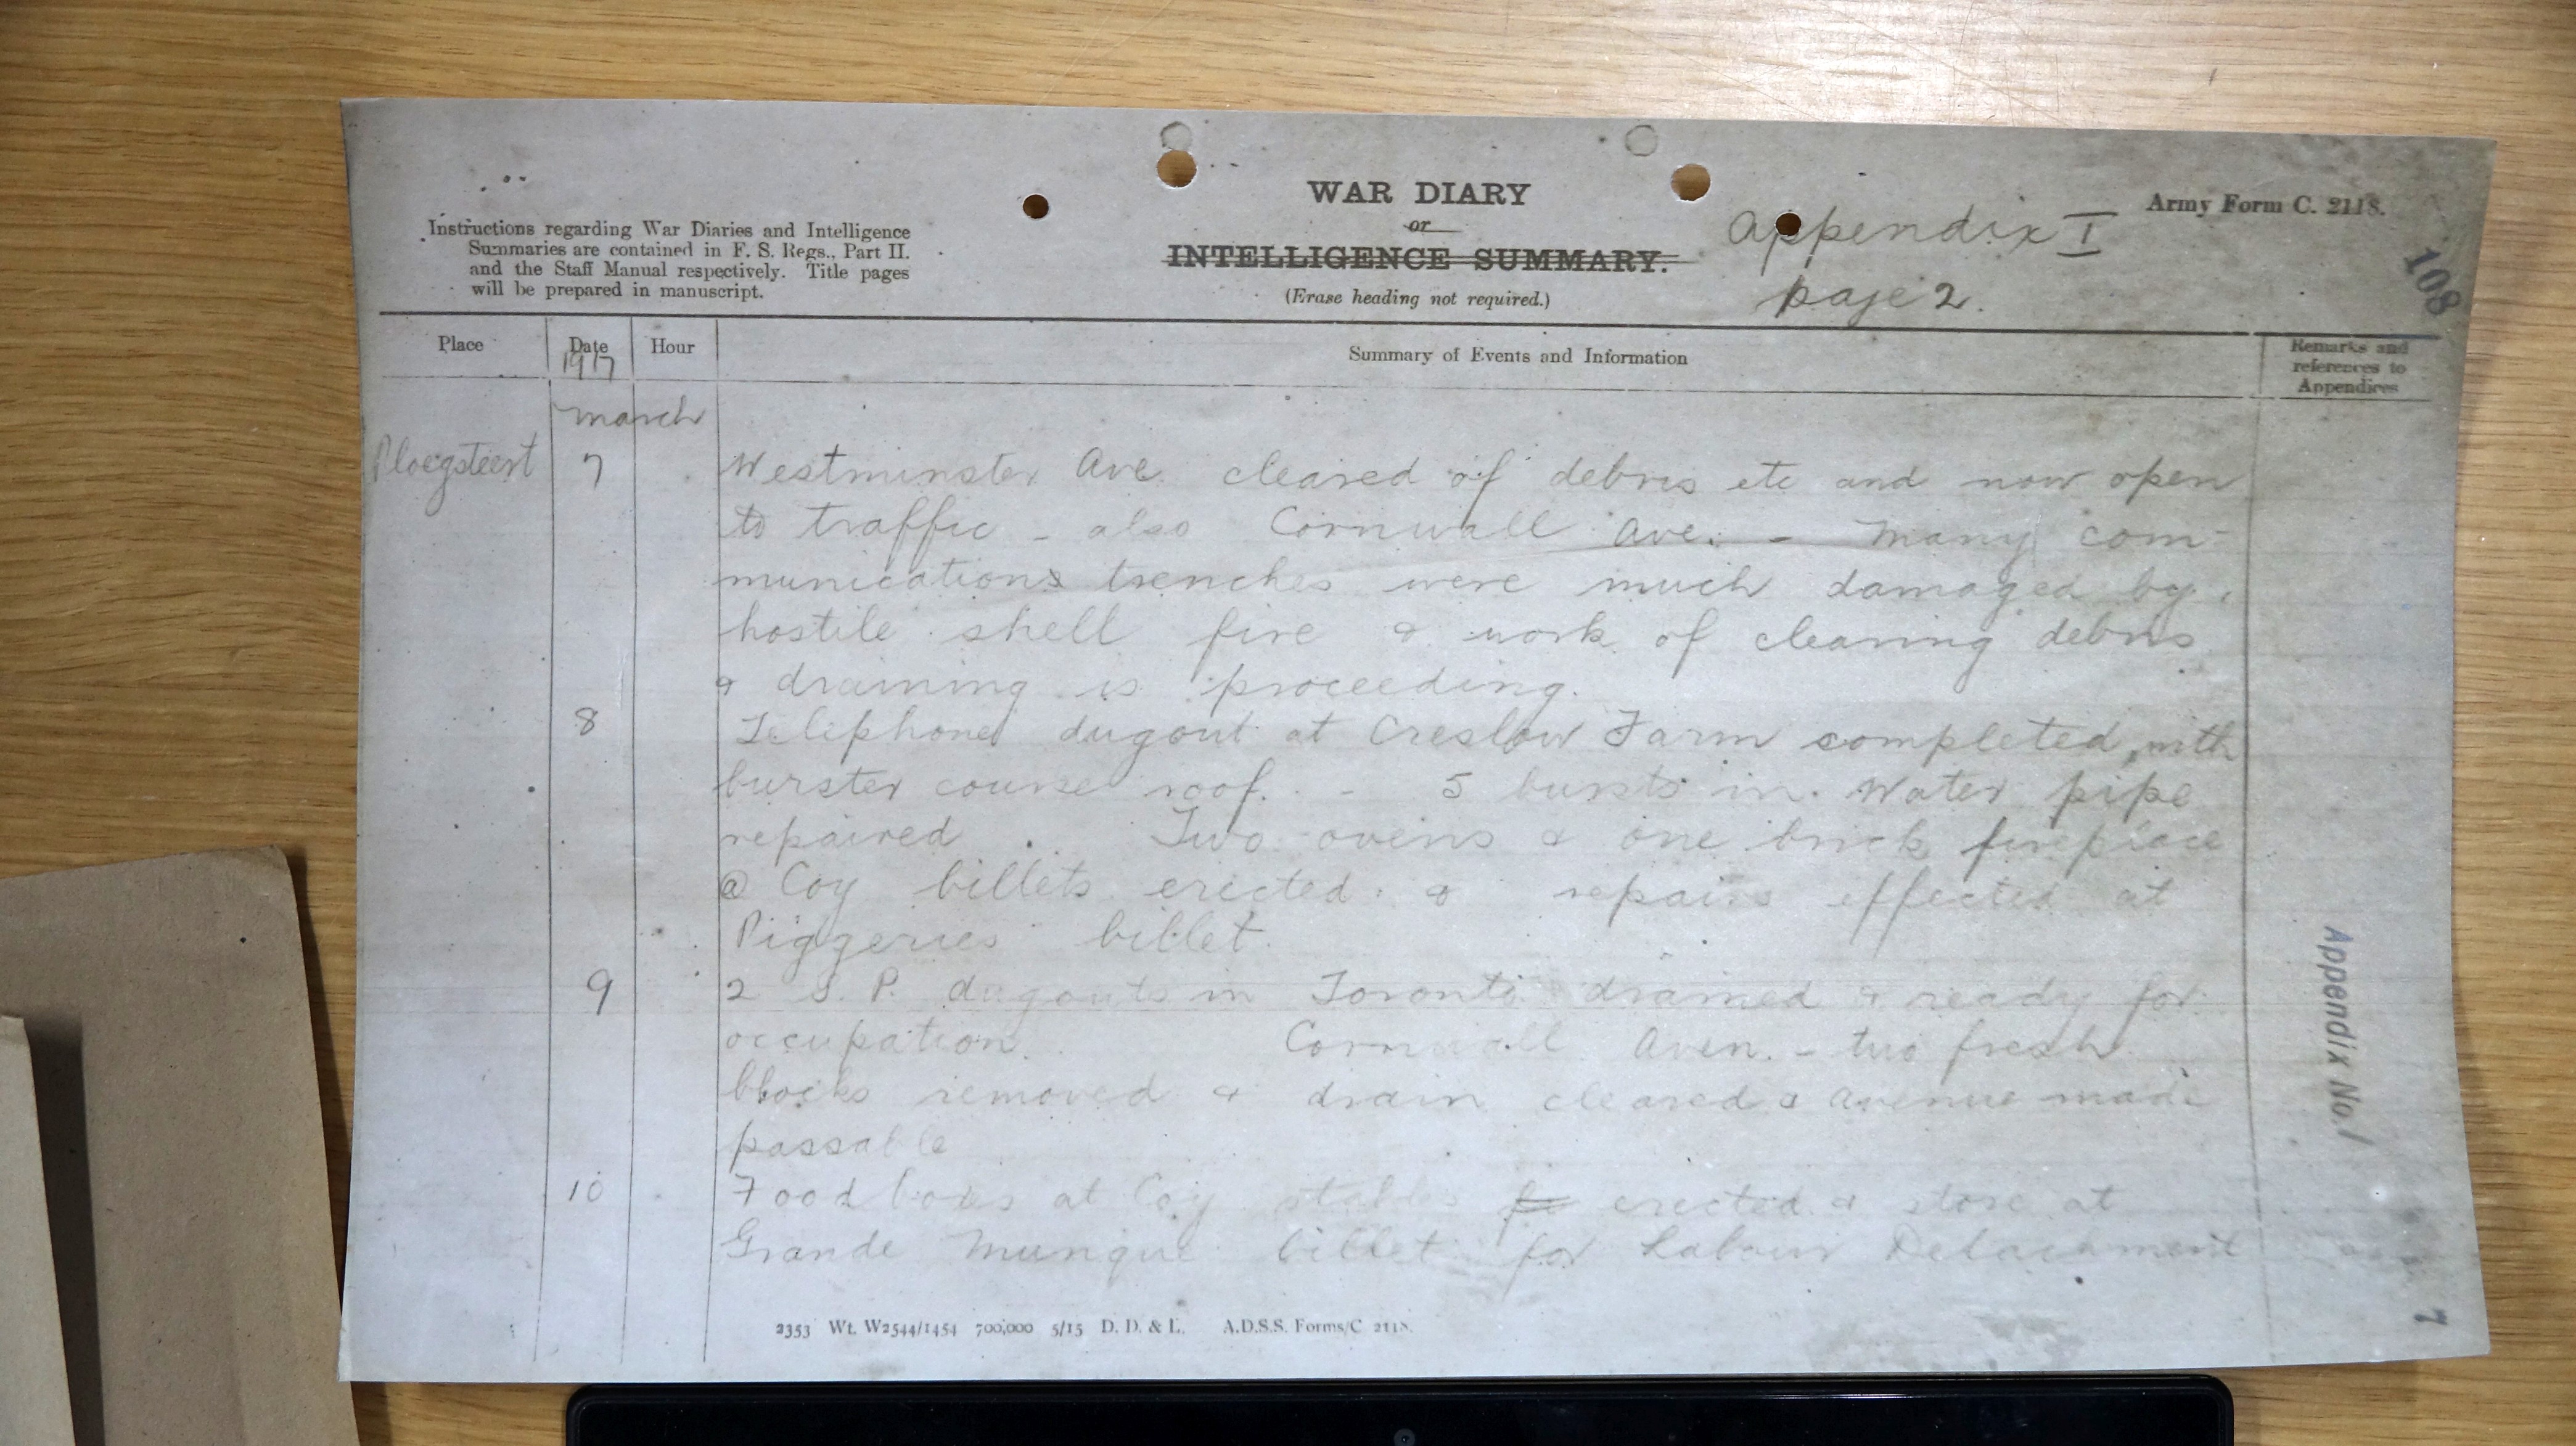 Instructions regarding War Diaries and Intelligence
Summaries are contained in F. S. Regs., Part II.
and the Staff Manual respectively. Title pages
will be prepared in manuscript.
WAR DIARY
or
INTELLIGENCE SUMMARY.
(Erase heading not required.)
Appendix I
page 2.
Army Form C. 2118.
108
Place
Date
1917
Hour
Summary of Events and Information
Remarks and
references to
Appendices
March
Ploegsteert 7 Westminster Ave cleared of debris etc and now open
to traffic - also Cornwall Ave. - Many com-
munications trenches were much damaged by
hostile shell fire & work of clearing debris
& draining is proceeding.
8 Telephone dugout at Creslow Farm completed, with
burster course roof. - 5 bursts in Water pipe
repaired. Two ovens & one brick fireplace
@ Coy billets erected & repairs effected at
Piggeries billet.
9 2 S. P. dugouts in Toronto drained & ready for
occupation. Cornwall Aven. - two fresh
blocks removed & drain cleared & avenue made
passable
10 Food boxes at Coy stables for erected & store at
Grande Munque billet for Labour Detachment
Appendix No. 1
7
2353 Wt. W2544/1454 700,000 5/15 D. D. & L. A.D.S.S. Forms/C 2118.